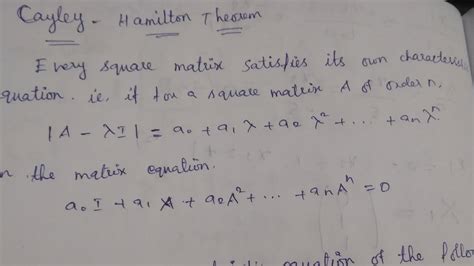 Cayley - Hamilton Theorem
Every square matrix satisfies its own characteris
quation. ie, if for a square matrix A of order n,
|A - λI| = a₀ + a₁ λ + a₀ λ² + ... + aₙ λⁿ
n the matrix equation.
a₀ I + a₁ A + a₀A² + ... + aₙAⁿ = 0
equation of the follo